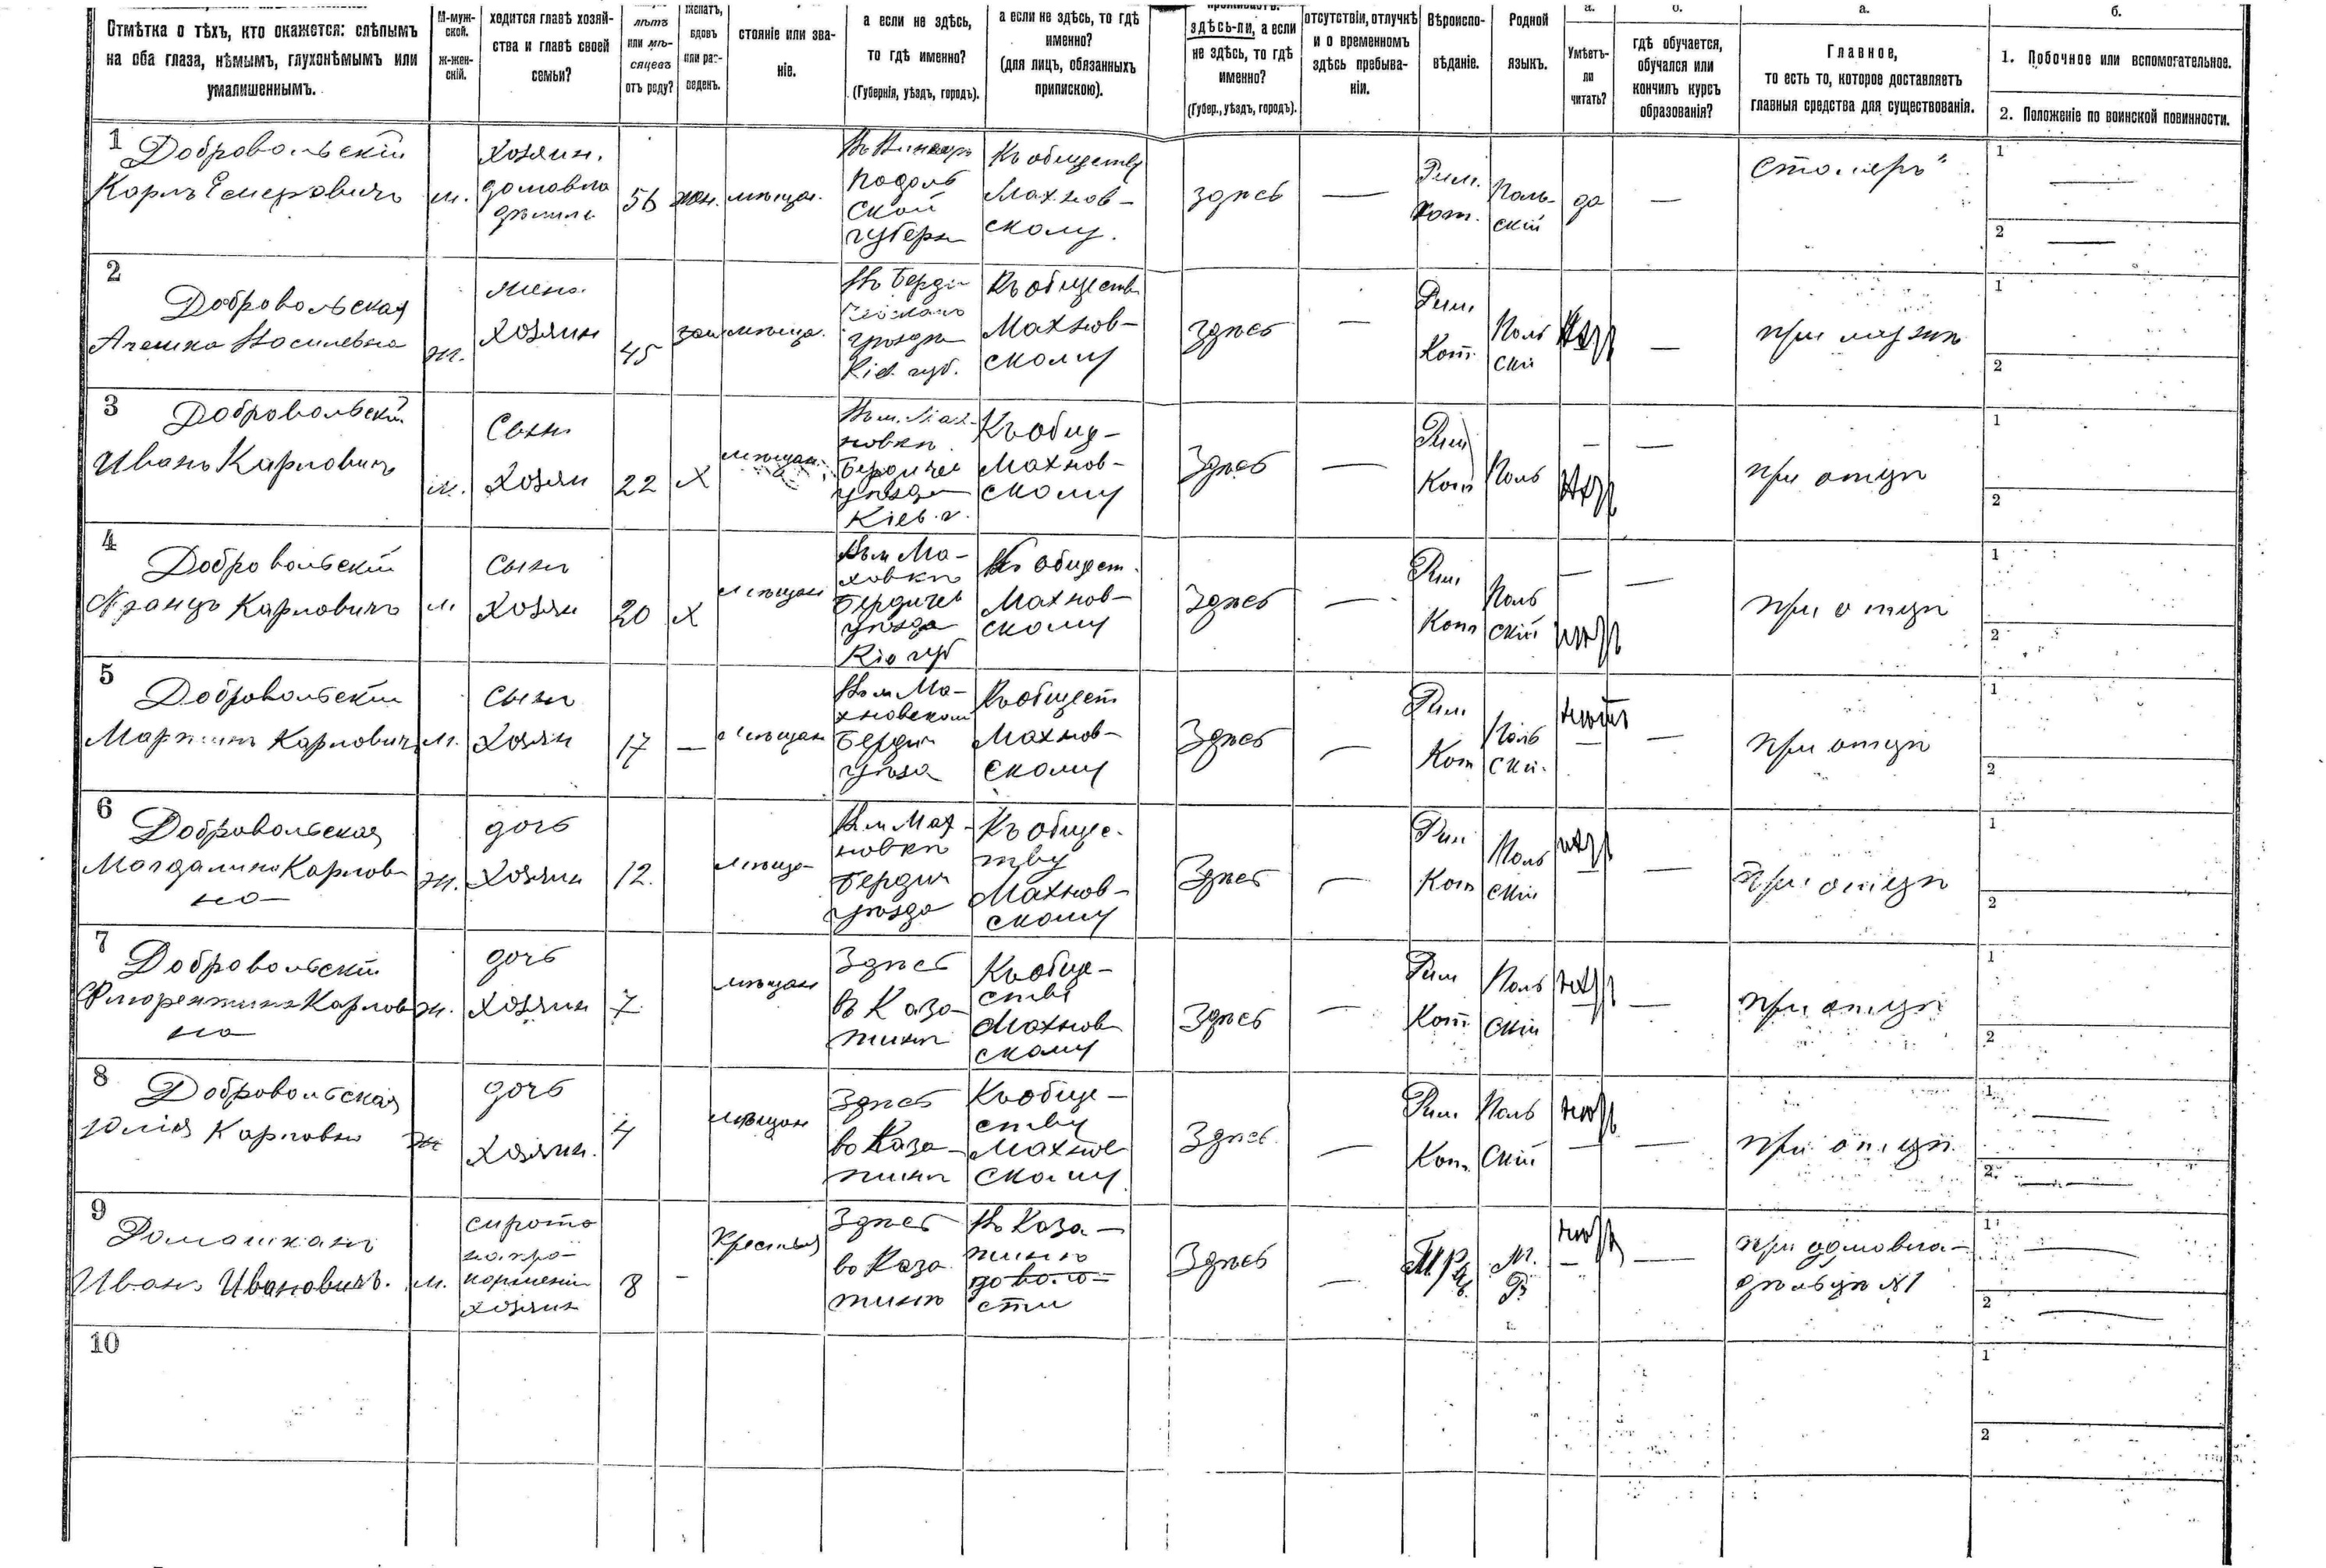 Отмѣтка о тѣхъ, кто окажется: слѣпымъ
на оба глаза, нѣмымъ, глухонѣмымъ или
умалишеннымъ.
М-муж-
ской.
ж-жен-
скій.
ходится главѣ хозяй-
ства и главѣ своей
семьи?
лѣтъ
или мѣ-
сяцевъ
отъ роду?
женатъ,
вдовъ
или раз-
веденъ.
стояніе или зва-
ніе.
а если не здѣсь,
то гдѣ именно?
(Губернія, уѣздъ, городъ).
а если не здѣсь, то гдѣ
именно?
(для лицъ, обязанныхъ
припискою).
здѣсь-ли, а если
не здѣсь, то гдѣ
именно?
(Губер., уѣздъ, городъ).
отсутствіи, отлучкѣ
и о временномъ
здѣсь пребыва-
ніи.
Вѣроиспо-
вѣданіе.
Родной
языкъ.
а.
Умѣетъ-
ли
читать?
б.
гдѣ обучается,
обучался или
кончилъ курсъ
образованія?
а.
Главное,
то есть то, которое доставляетъ
главныя средства для существованія.
б.
1. Побочное или вспомогательное.
2. Положеніе по воинской повинности.
1 Добровольскій
Карлъ
м.
хозяин.
домовла
56
жен.
мѣщан.
Подоль
ской
губерн
Къ обществу
Махнов-
скому.
здѣсь
—
Рим.
Кат.
Поль-
скій
да
—
Столяръ
1 —
2 —
2
Добровольская
ж.
жена
хозяин
45
зам
мѣща.
Въ Берди
уѣзда
Кіев. губ.
Къ обществ
Махнов-
скому
здѣсь
—
Рим
Кат
Поль
скій
—
при мужѣ
1
2
3 Добровольскій
Иванъ Карловичъ
м.
Сынъ
хозяи
22
Х
мѣщан
Въ м. Мах-
новкѣ
Бердичев
уѣзда
Кіев. г.
Къ общ-
Махнов-
скому
Здѣсь
—
Рим
Кат
Поль
—
—
при отцѣ
1
2
4
Добровольскій
Францъ Карловичъ
м.
сынъ
хозяи
20
х
мѣщан
Въ м Ма-
ховкѣ
Бердичев
уѣзда
Кіе губ
Къ общест.
Махнов-
скому
Здѣсь
—
Рим
Кат
Поль
скій
—
—
при отцѣ
1
2
5
Добровольскій
Мартинъ Карлович
м.
сынъ
хозяи
17
—
мѣщан
Въ м Ма-
хновской
Бердич
уѣзд
Къ общест
Махнов-
скому
Здѣсь
—
Рим
Кат
Поль
скій.
—
—
при отцѣ
1
2
6
Добровольская
Магдалина Карлов-
на
ж.
дочь
хозяин
12.
мѣща-
Въ м Мах-
новкѣ
Бердич
уѣзда
Къ общес-
тву
Махнов-
скому
Здѣсь
—
Рим
Кат
Поль
скій
—
—
при отцѣ
1
2
7
Добровольскій
Флорентина Карлов
на
ж.
дочь
хозяин
7
мѣщан
Здѣсь
в Каза-
тинѣ
Къ обще-
ству
Махнов
скому
Здѣсь
—
Рим
Кат
Поль
скій
—
—
при отцѣ
1
2
8
Добровольская
Юлія Карловна
ж
дочь
хозяин.
4
мѣщан
Здѣсь
во Каза-
тинѣ
Къ обще-
ству
Махнов
скому
Здѣсь
—
Рим
Кат.
Поль
скій
—
—
при отцѣ
1 —
2. —
9
Иванъ Ивановичъ.
м.
сирота
на про-
кормленіи
хозяин
8
—
Крестьян
Здѣсь
во Каза
тинѣ
Въ Каза-
тинѣ
волости
Здѣсь
—
М.
Р.
—
—
при домовла-
дѣльцѣ №1
1 —
2 —
10
1
2